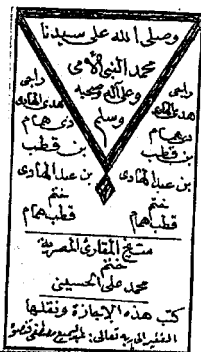 وصلى الله على سيدنا
محمد النبي الأمي
وعلى آله وصحبه
وسلم
راجي
هدى الهادي
دى همام
بن قطب
بن عبد الهادى
ختم
قطب همام
راجى
هدى الهادى
دى همام
بن قطب
بن عبد الهادى
ختم
قطب همام
شيخ المقارئ المصرية
ختم
محمد على الحسينى
كتب هذه الإجازة ونقلها
الفقير إلى ربه تعالى: